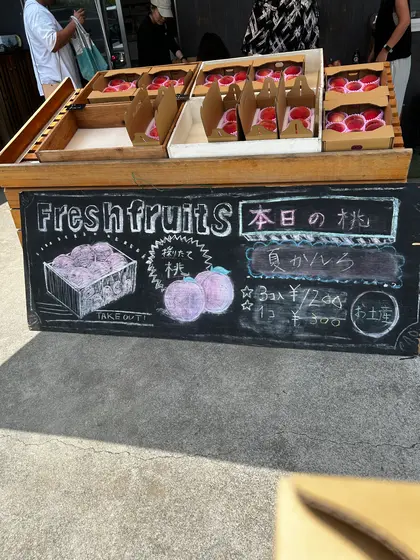 Fresh fruits
本日の桃
採れたて
桃
夏かんろ
☆ 3コ入 ¥1200
☆ 1コ ¥500
お土産
TAKE OUT!